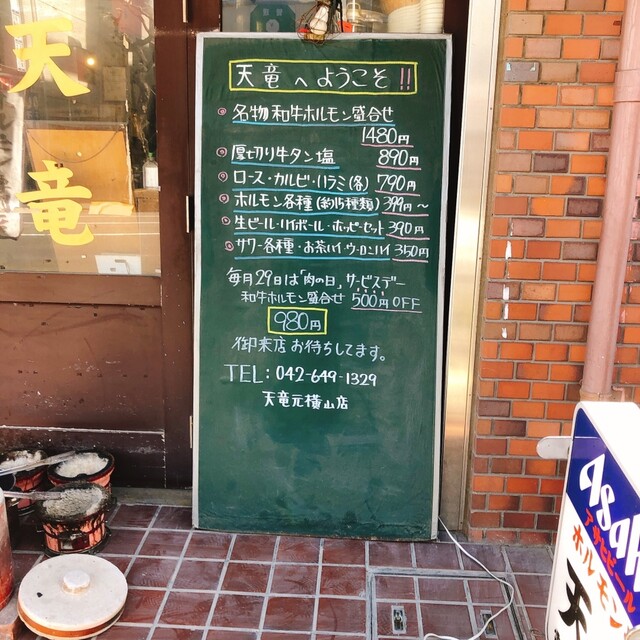 天竜
天竜へようこそ!!
名物 和牛ホルモン盛合せ
1480円
厚切り牛タン塩 890円
ロース・カルビ・ハラミ(各) 790円
ホルモン各種(約15種類) 399円〜
生ビール・ハイボール・ホッピーセット 390円
サワー各種・お茶ハイ・ウーロンハイ 350円
毎月29日は「肉の日」サービスデー
和牛ホルモン盛合せ 500円OFF
980円
御来店お待ちしてます。
TEL:042-649-1329
天竜元横山店
Asah
アサヒビール
ホルモン
天